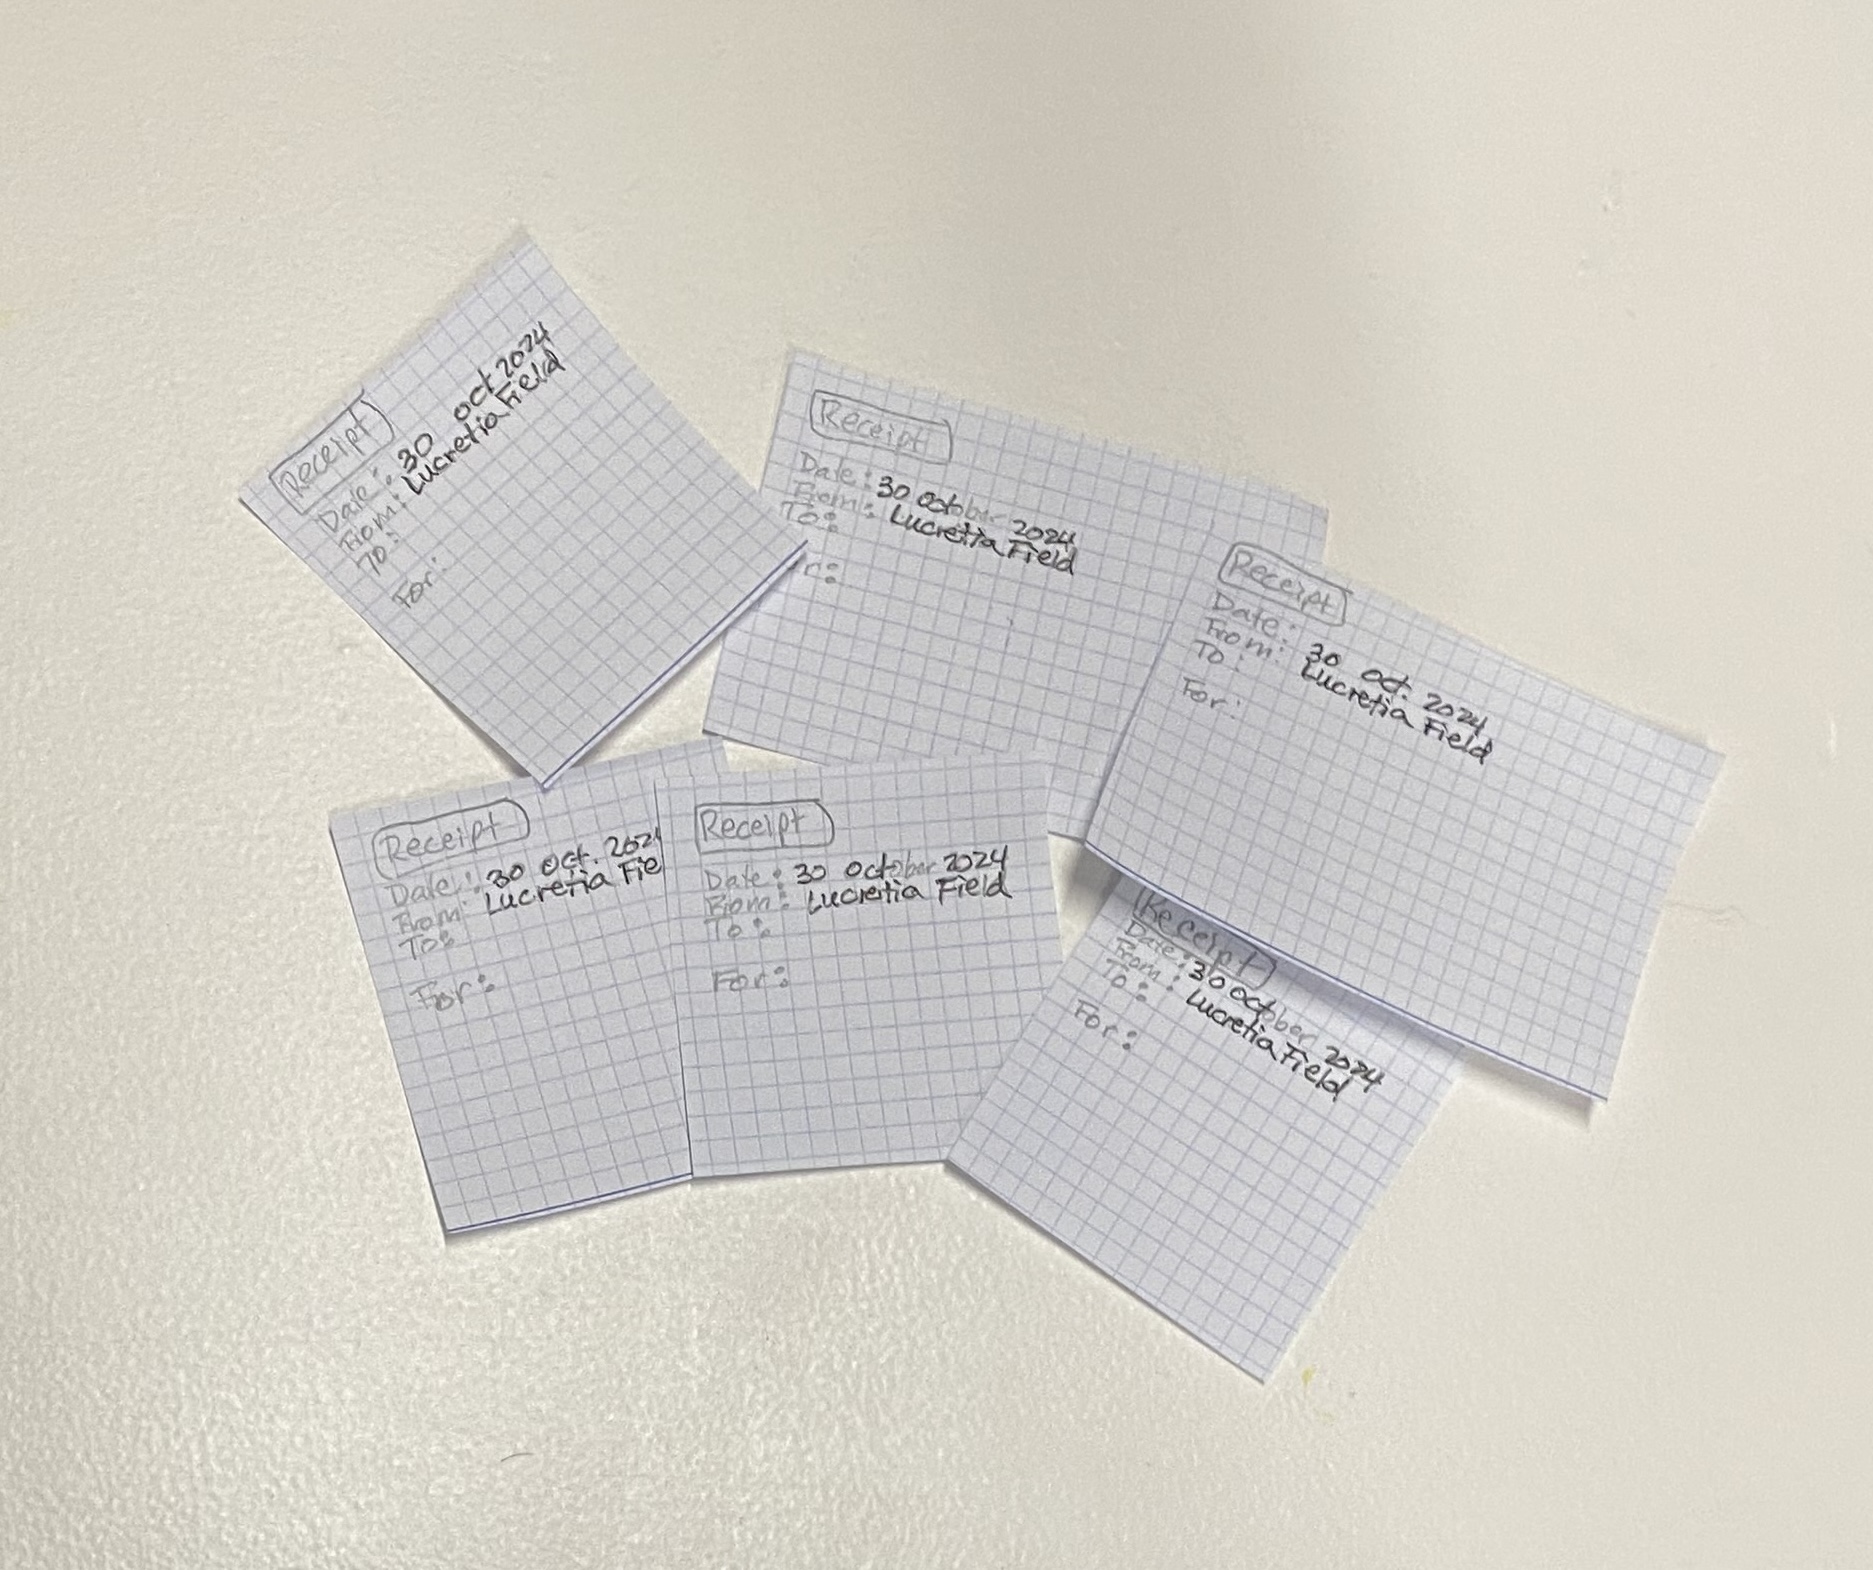 Receipt
Date: 30 oct 2024
From: Lucretia Field
To:
For:
Receipt
Date: 30 october 2024
From: Lucretia Field
To:
r:
Receipt
Date: 30 oct. 2024
From: Lucretia Field
To:
For:
Receipt
Date: 30 oct. 2024
From: Lucretia Fie
To:
For:
Receipt
Date: 30 october 2024
From: Lucretia Field
To:
For:
Receipt
Date: 30 october 2024
From: Lucretia Field
To:
For: